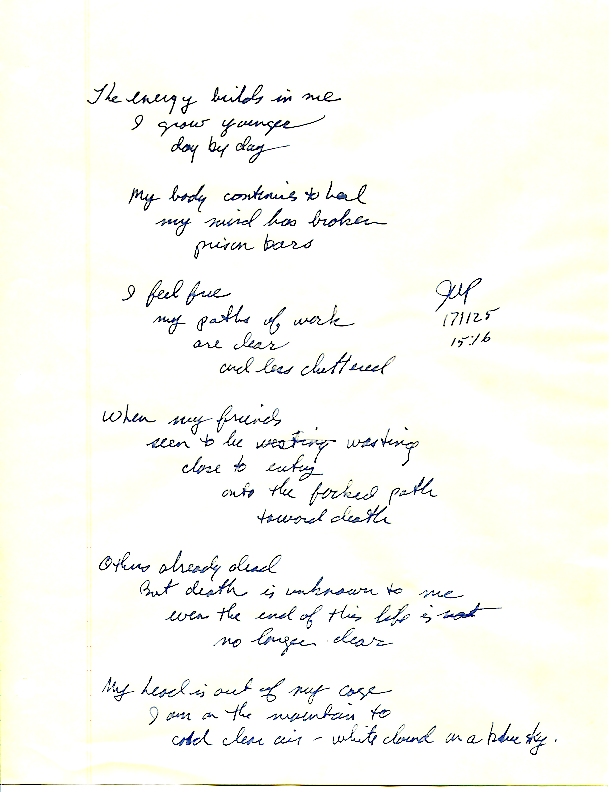 The energy builds in me
I grow younger
day by day
My body continues to heal
my mind has broken
prison bars
I feel free
my paths of work
are clear
and less cluttered
171125
15:16
When my friends
seem to be wasting wasting
close to entry
onto the forked path
toward death
Others already dead
But death is unknown to me
even the end of this life is not
no longer clear
My head is out of my cage
I am on the mountain to
cold clear air - white cloud on a blue sky.